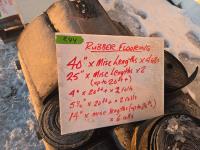 E44
RUBBER FLOORING
40" x Misc Lengths x 4 rolls
25" x Misc Lengths x 2
(up to 20ft+)
4" x 20ft+ x 2 rolls
5½" x 20ft+ x 2 rolls
14" x Misc Lengths (up to
x 6 rolls